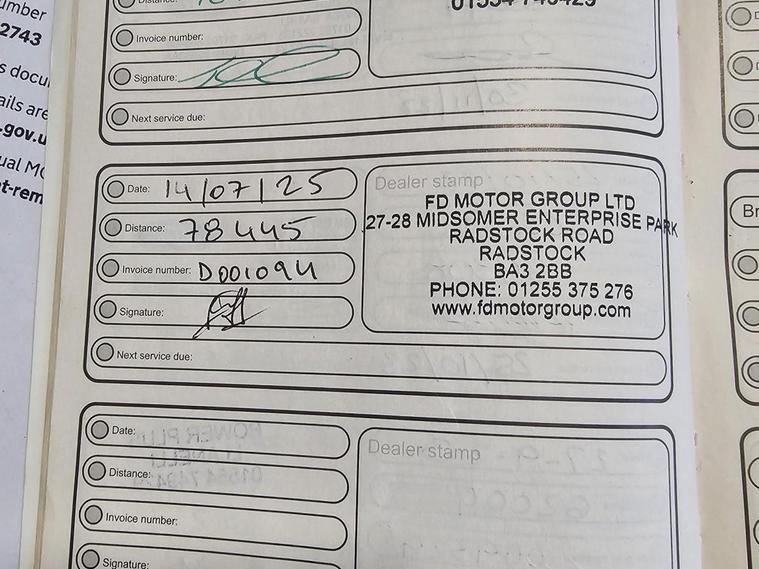 umber
2743
s docu
ails are
.gov.u
ual MO
t-rem
Distance:
Invoice number:
Signature:
Next service due:
01554 749429
Date: 14/07/25
Distance: 78445
Invoice number: D001094
Signature:
Next service due:
Dealer stamp
FD MOTOR GROUP LTD
27-28 MIDSOMER ENTERPRISE PARK
RADSTOCK ROAD
RADSTOCK
BA3 2BB
PHONE: 01255 375 276
www.fdmotorgroup.com
Date:
Distance:
Invoice number:
Signature:
Dealer stamp
Br